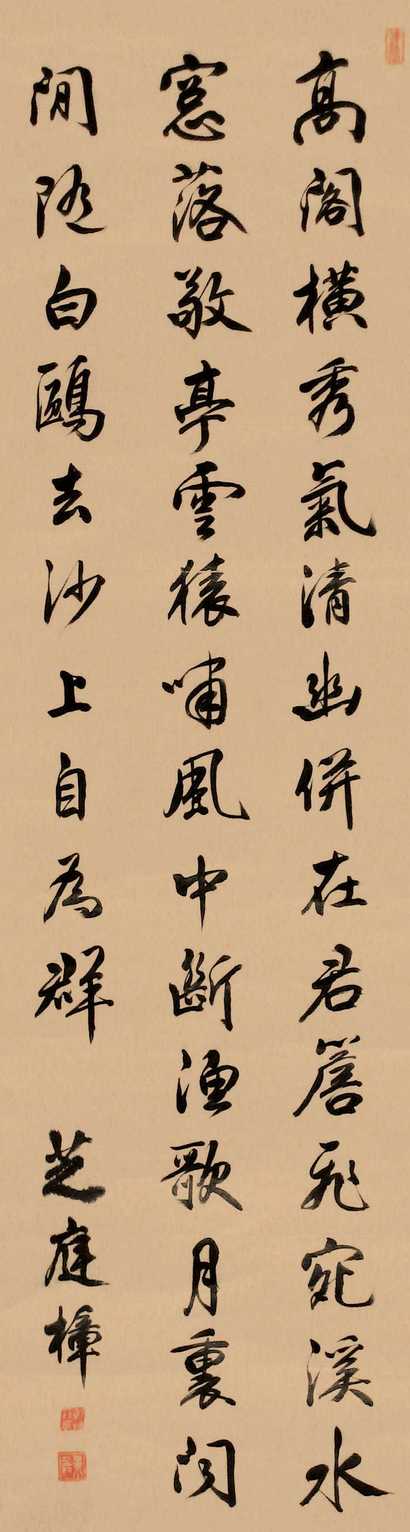 高閣橫秀氣清幽併在君簷飛宛溪水
窓落敬亭雲猿嘯風中斷漁歌月裏聞
閒隨白鷗去沙上自為群
芝庭樟